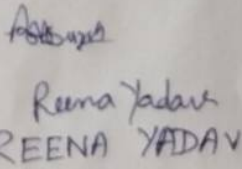 Reena Yadav
REENA YADAV